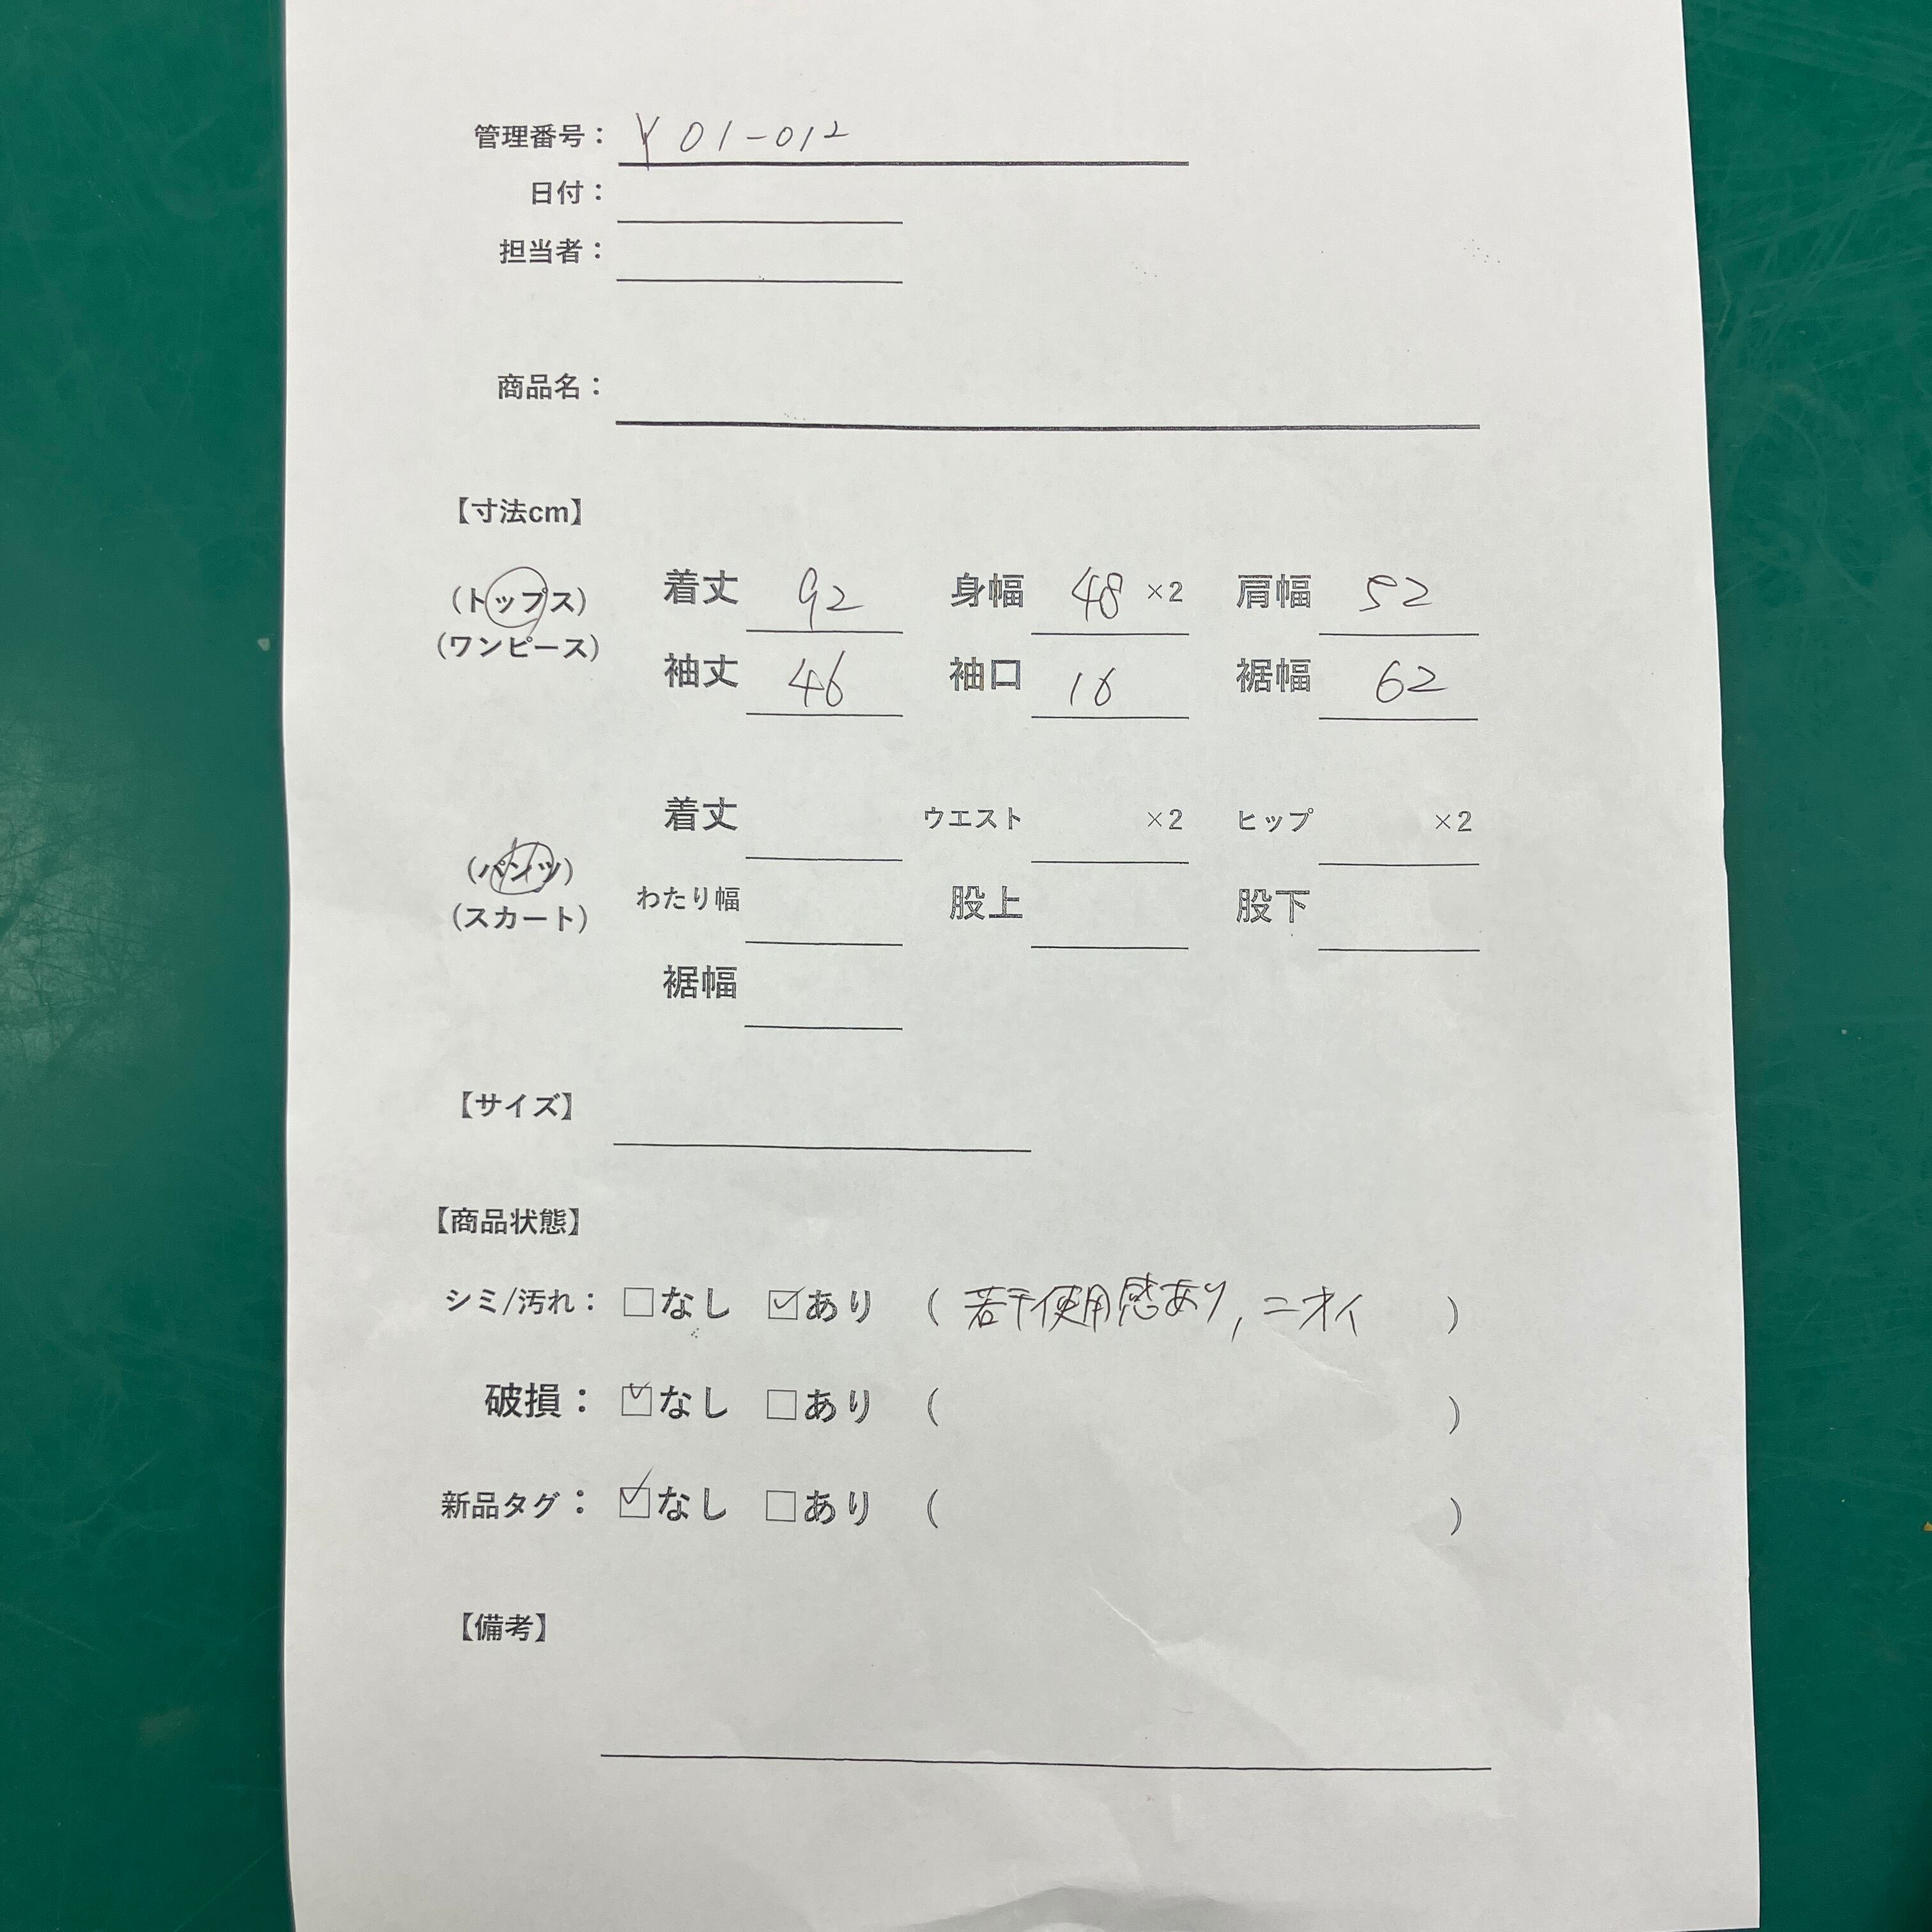 管理番号： Y01-012
日付：
担当者：
商品名：
【寸法cm】
（トップス） 着丈 92 身幅 48 ×2 肩幅 52
（ワンピース） 袖丈 46 袖口 16 裾幅 62
着丈 ウエスト ×2 ヒップ ×2
（パンツ） わたり幅 股上 股下
（スカート）
裾幅
【サイズ】
【商品状態】
シミ/汚れ： □なし ☑あり （ 若干使用感あり, ニオイ ）
破損： ☑なし □あり （ ）
新品タグ： ☑なし □あり （ ）
【備考】